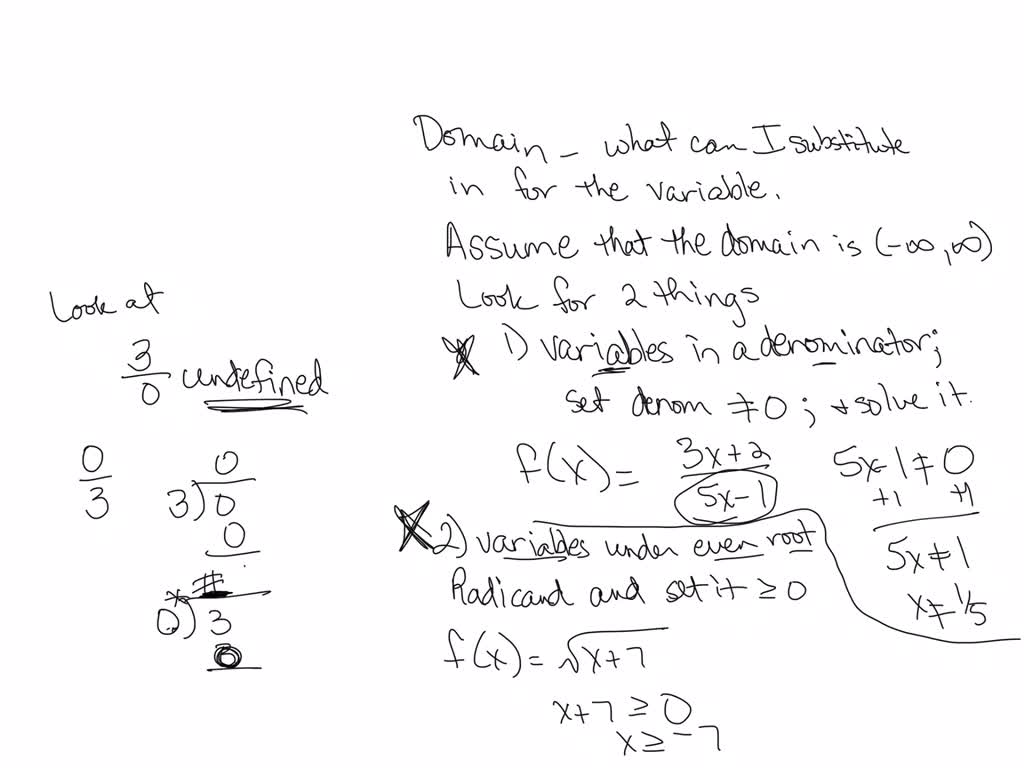 Domain – what can I substitute
in for the variable.
Assume that the domain is (-∞,∞)
Look for 2 things
1) variables in a denominator;
set denom ≠0 ; + solve it.
f(x) = 3x+2 / 5x-1
5x-1≠0
+1 +1
5x≠1
x≠1/5
2) variables under even root
Radicand and set it ≥ 0
f(x) = √x+7
x+7 ≥ 0
x ≥ -7
Look at
3/0 undefined
0/3
0
3)0
0
#
0)3
0